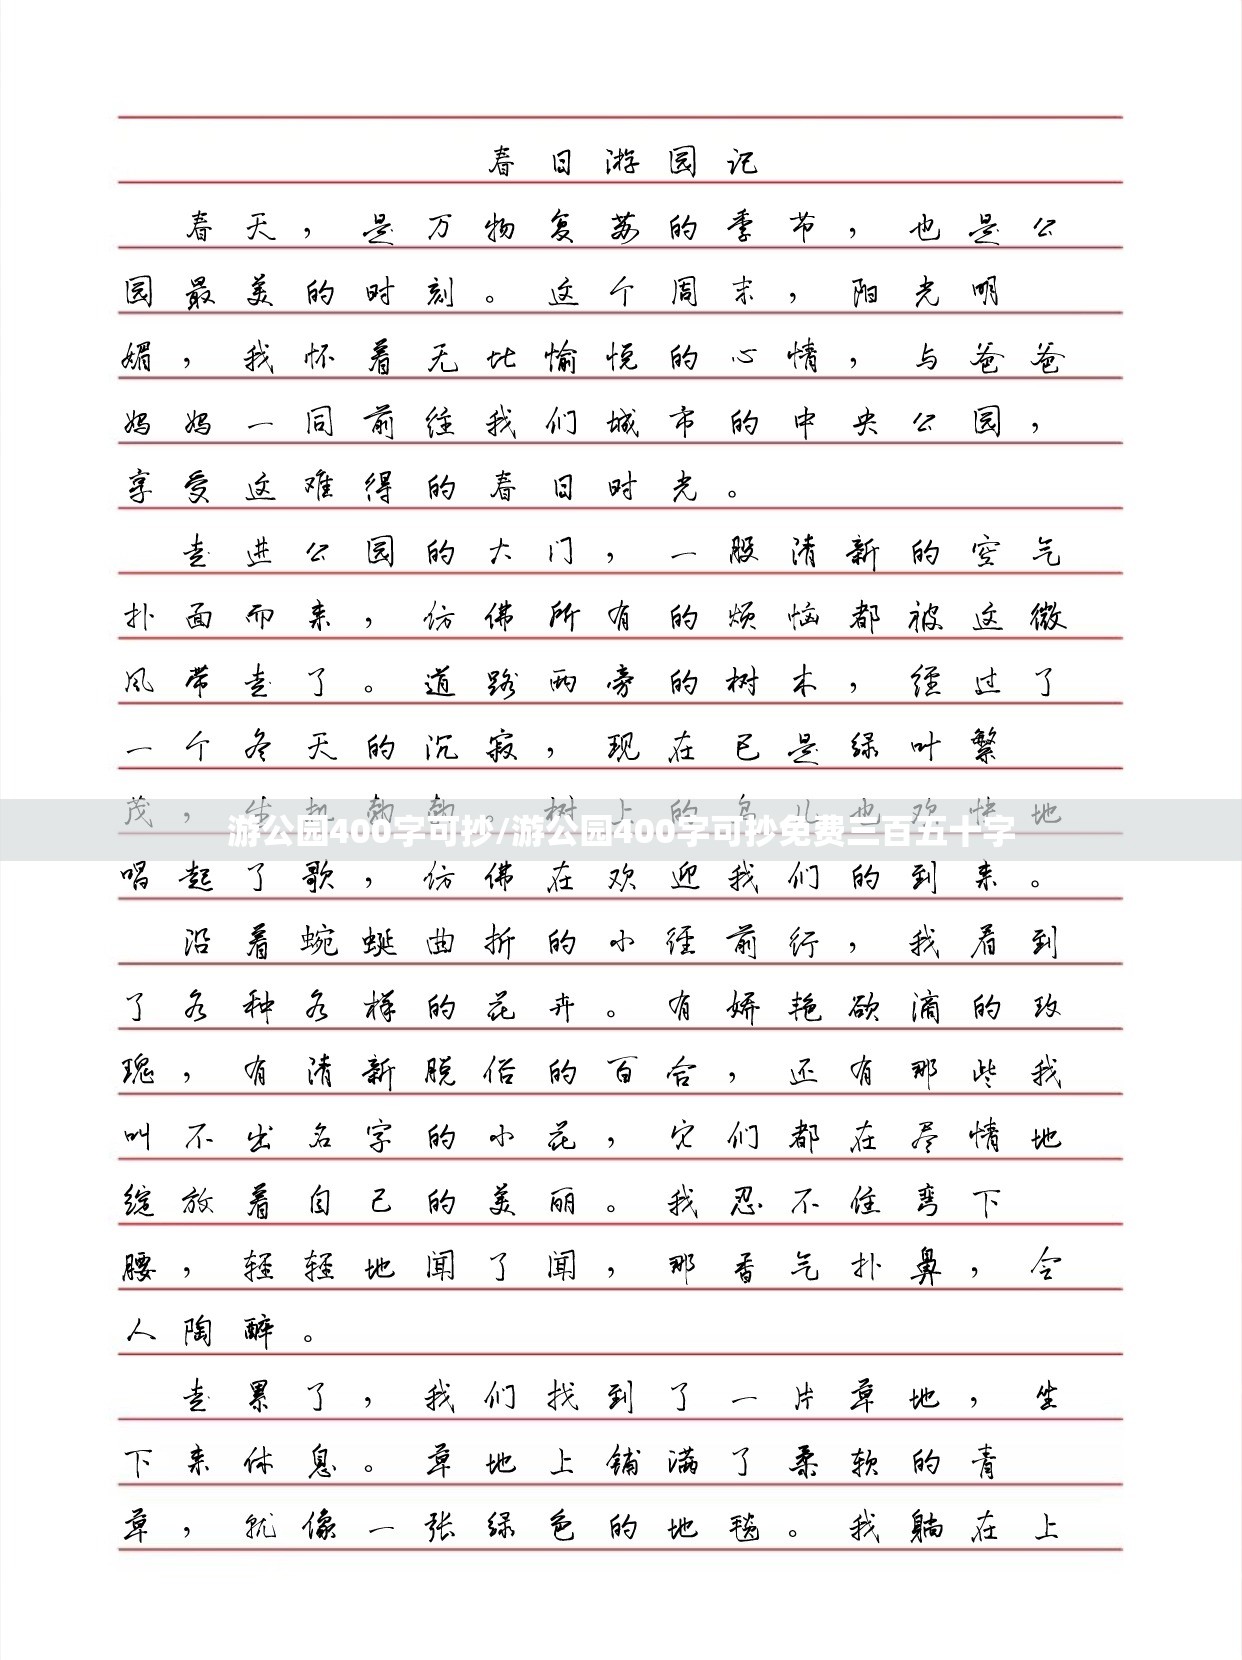 春日游园记
春天，是万物复苏的季节，也是公
园最美的时刻。这个周末，阳光明
媚，我怀着无比愉悦的心情，与爸爸
妈妈一同前往我们城市的中央公园，
享受这难得的春日时光。
走进公园的大门，一股清新的空气
扑面而来，仿佛所有的烦恼都被这微
风带走了。道路两旁的树木，经过了
一个冬天的沉寂，现在已是绿叶繁
茂，生机勃勃。树上的鸟儿也欢快地
游公园400字可抄/游公园400字可抄免费三百五十字
唱起了歌，仿佛在欢迎我们的到来。
沿着蜿蜒曲折的小径前行，我看到
了各种各样的花卉。有娇艳欲滴的玫
瑰，有清新脱俗的百合，还有那些我
叫不出名字的小花，它们都在尽情地
绽放着自己的美丽。我忍不住弯下
腰，轻轻地闻了闻，那香气扑鼻，令
人陶醉。
走累了，我们找到了一片草地，坐
下来休息。草地上铺满了柔软的青
草，就像一张绿色的地毯。我躺在上